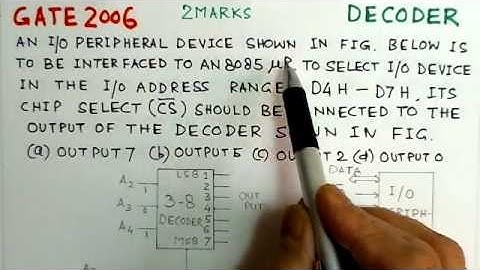 GATE2006 2MARKS DECODER
AN I/O PERIPHERAL DEVICE SHOWN IN FIG. BELOW IS
TO BE INTERFACED TO AN 8085 μP. TO SELECT I/O DEVICE
IN THE I/O ADDRESS RANGE D4H-D7H, ITS
CHIP SELECT (C̅S̅) SHOULD BE CONNECTED TO THE
OUTPUT OF THE DECODER IN FIG.
(a) OUTPUT 7 (b) OUTPUT 5 (c) 2 (d) OUTPUT 0
LSB 1 DATA
A2 1 2 I/O
3-8 3 OUT
A3 1 DECODER 4 PUT
5
A4 1 6
MSB 7